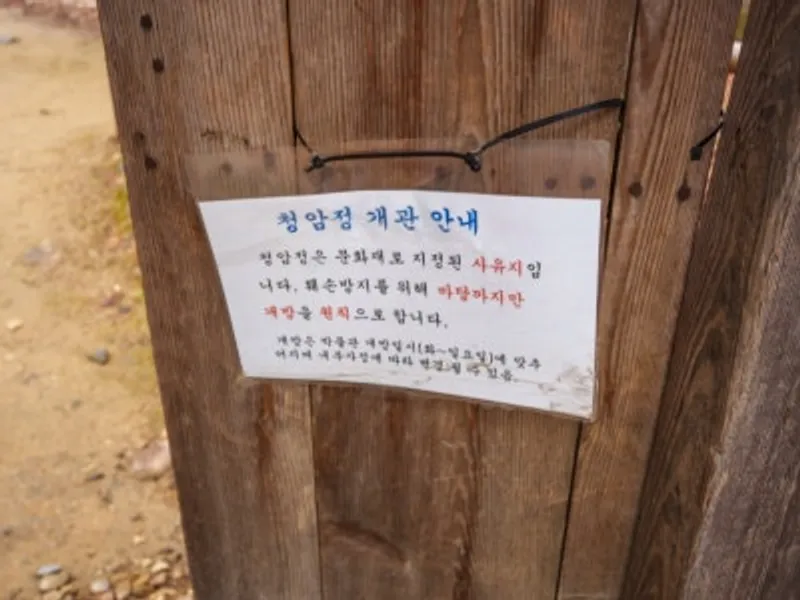 청암정 개관 안내
청암정은 문화재로 지정된 사유지입
니다. 훼손방지를 위해 마당까지만
개방을 원칙으로 합니다.
개방은 박물관 개방일시(화~일요일)에 맞추
어지며 내부사정에 따라 변경 될 수 있음.